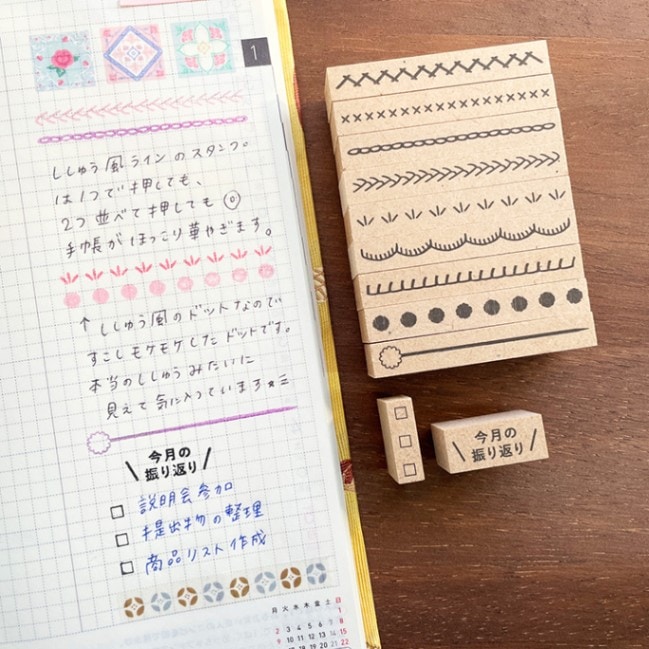 1
ししゅう風ラインのスタンプ。
は1つで押しても、
2つ並べて押しても◎
手帳がほっこり華やぎます。
↑ししゅう風のドットなので
すこしモケモケしたドットです。
本当のししゅうみたいに
見えて気に入っています
今月の
振り返り
□ 説明会参加
□ 提出物の整理
□ 商品リスト作成
月火水木金土日
1
2 3 4 5 6 7 8
9 10 11 12 13 14 15
今月の
振り返り